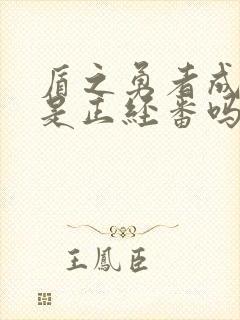 盾之勇者成
是正经番吗
王鳳臣